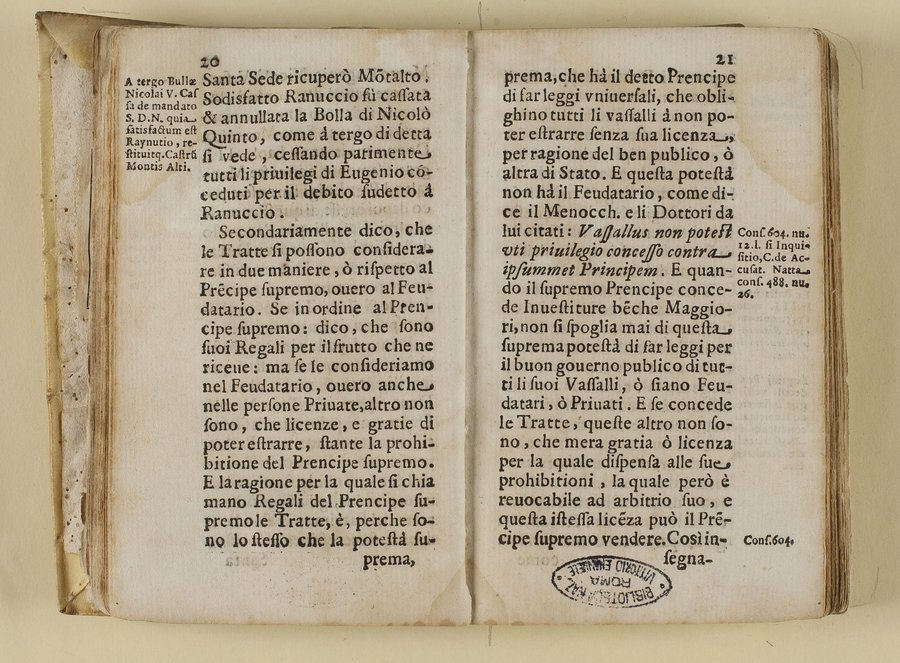 20
A tergo Bullæ
Nicolai V. Caſ
ſa de mandato
S. D. N. quia
ſatisfactum eſt
Raynutio, re-
ſtituitq. Caſtrũ
Montis Alti.
Santa Sede ricuperò Mõtalto.
Sodisfatto Ranuccio fù caſſata
& annullata la Bolla di Nicolò
Quinto, come à tergo di detta
ſi vede, ceſſando parimente
tutti li priuilegi di Eugenio cõ-
ceduti per il debito ſudetto à
Ranuccio.
Secondariamente dico, che
le Tratte ſi poſſono conſidera-
re in due maniere, ò riſpetto al
Prẽcipe ſupremo, ouero al Feu-
datario. Se in ordine al Pren-
cipe ſupremo: dico, che ſono
ſuoi Regali per il frutto che ne
riceue: ma ſe le conſideriamo
nel Feudatario, ouero anche
nelle perſone Priuate, altro non
ſono, che licenze, e gratie di
poter eſtrarre, ſtante la prohi-
bitione del Prencipe ſupremo.
E la ragione per la quale ſi chia
mano Regali del Prencipe ſu-
premo le Tratte, è, perche ſo-
no lo ſteſſo che la poteſtà ſu-
prema,
21
prema, che hà il detto Prencipe
di far leggi vniuerſali, che obli-
ghino tutti li vaſſalli à non po-
ter eſtrarre ſenza ſua licenza,
per ragione del ben publico, ò
altra di Stato. E queſta poteſtà
non hà il Feudatario, come di-
ce il Menocch. e li Dottori da
lui citati: Vaſſallus non poteſt
vti priuilegio conceſſo contra
ipſummet Principem. E quan-
do il ſupremo Prencipe conce-
de Inueſtiture bẽche Maggio-
ri, non ſi ſpoglia mai di queſta
ſuprema poteſtà di far leggi per
il buon gouerno publico di tut-
ti li ſuoi Vaſſalli, ò ſiano Feu-
datari, ò Priuati. E ſe concede
le Tratte, queſte altro non ſo-
no, che mera gratia ò licenza
per la quale diſpenſa alle ſue
prohibitioni, la quale però è
reuocabile ad arbitrio ſuo, e
queſta iſteſſa licẽza può il Prẽ-
cipe ſupremo vendere. Così in-
ſegna-
Conſ. 604. nu.
12. l. ſi Inqui-
ſitio, C. de Ac-
cuſat. Natta
conſ. 488. nu.
26.
Conſ. 604.
BIBLIOTECA NAZ.
ROMA
VITTORIO EMANUELE